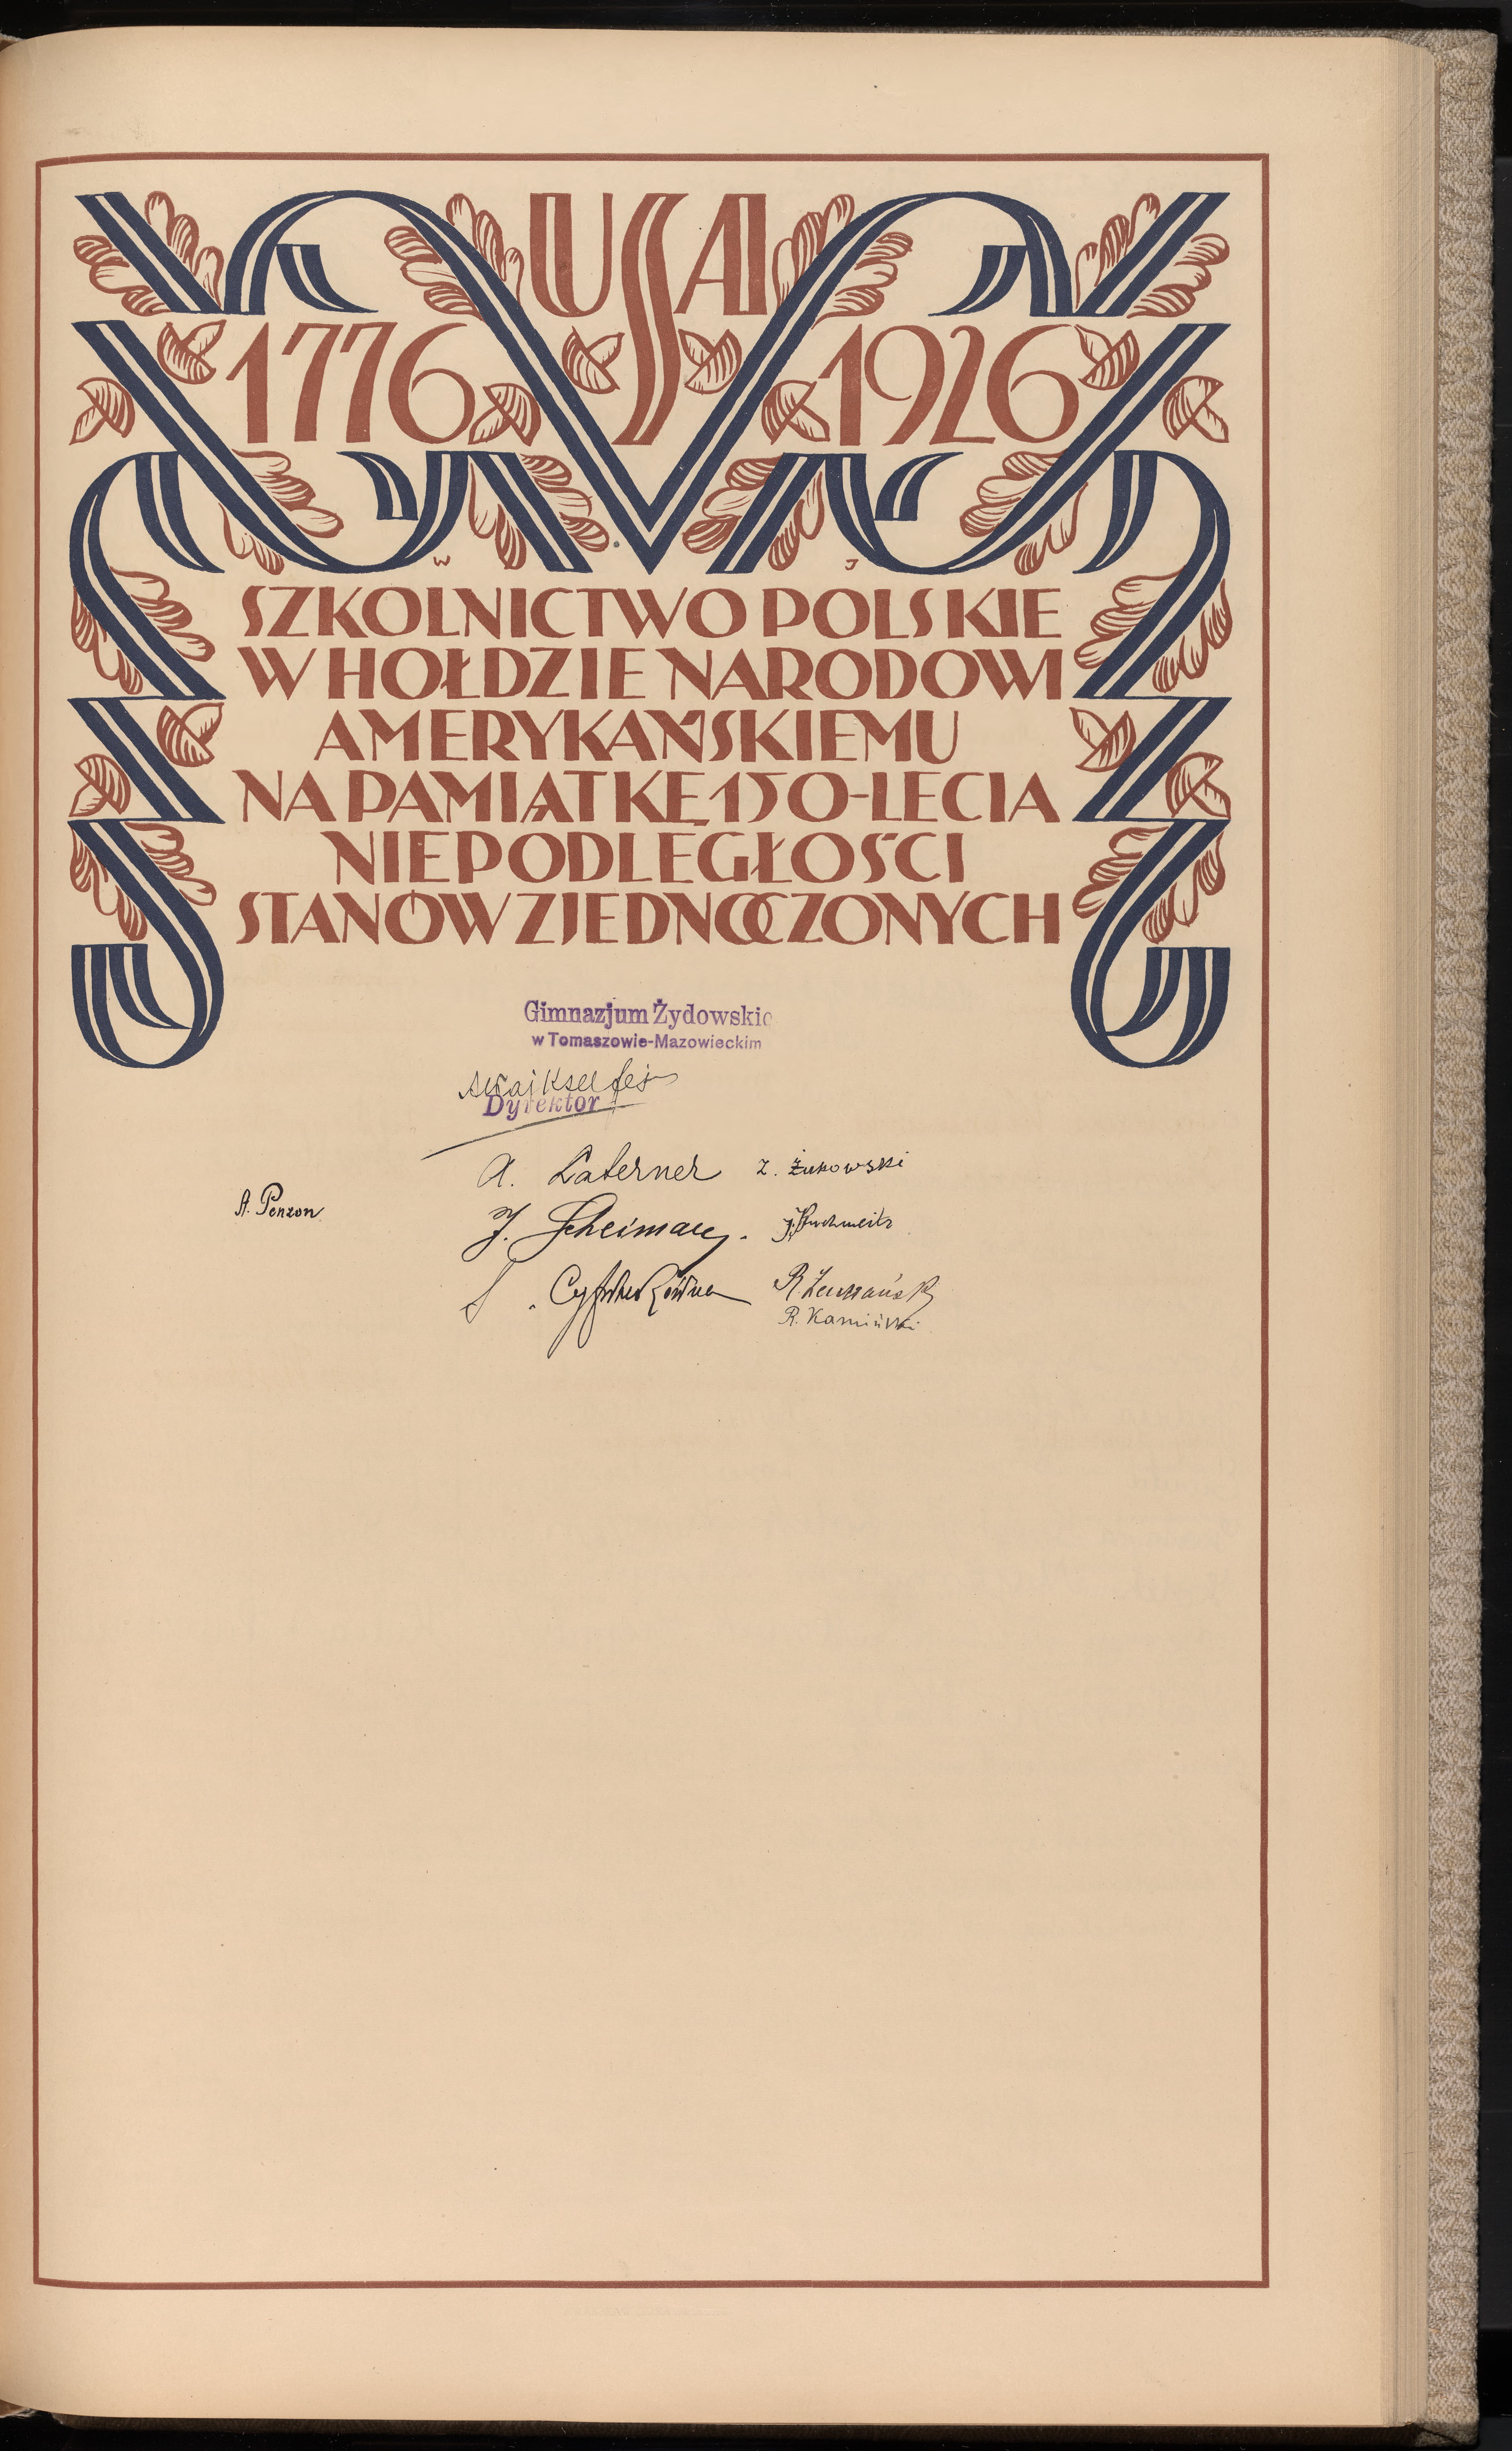 USA
1776 1926
W J
SZKOLNICTWO POLSKIE
W HOŁDZIE NARODOWI
AMERYKAŃSKIEMU
NA PAMIĄTKĘ 150-LECIA
NIEPODLEGŁOŚCI
STANÓW ZJEDNOCZONYCH
Gimnazjum Żydowskie
w Tomaszowie-Mazowieckim
Dyrektor
A. Laterner Z. Żukowski
A. Penzon
J. Scheimann.
R. Kamiński